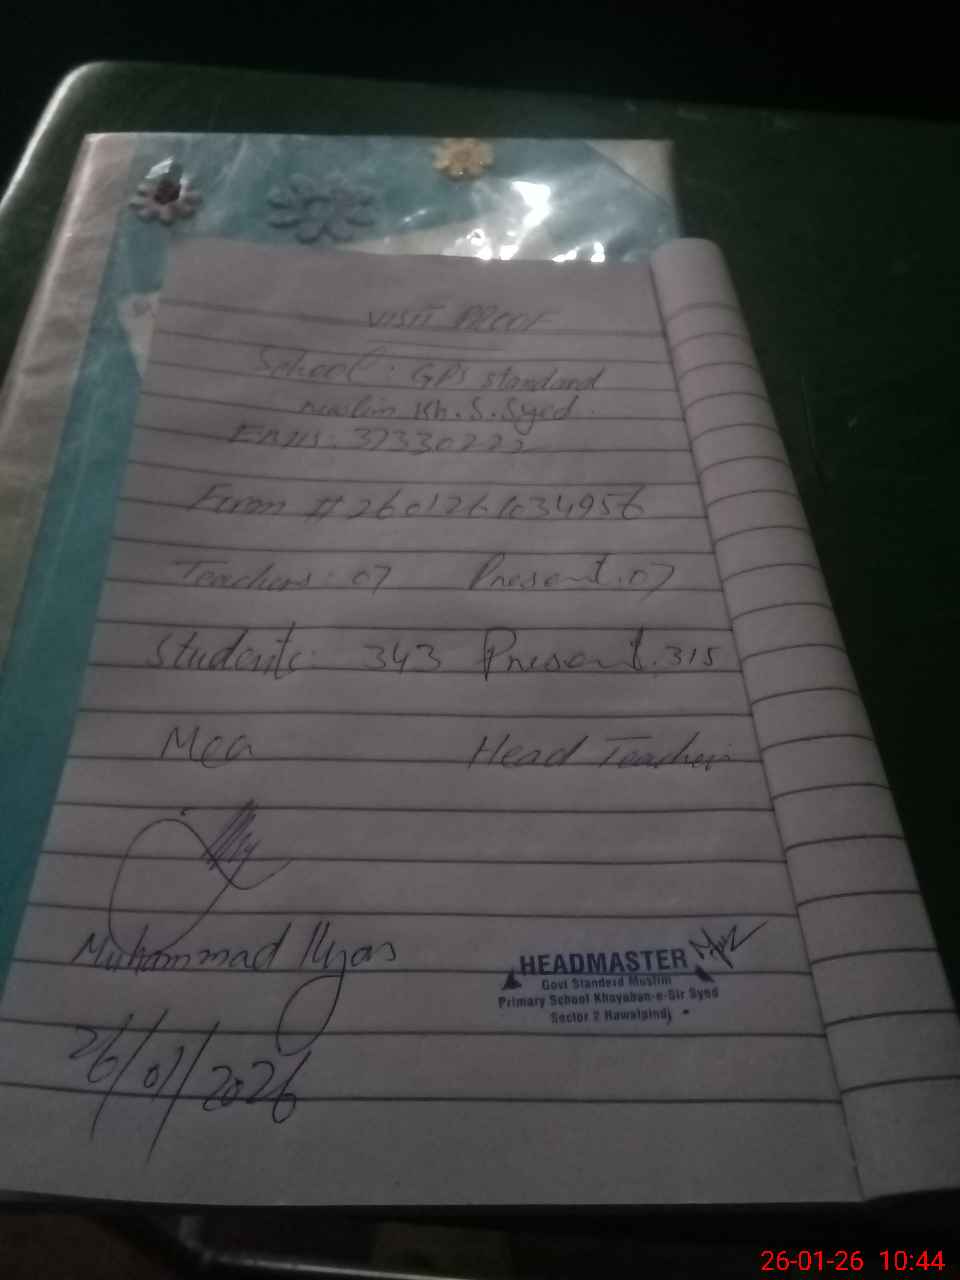 VISIT PROOF
School: GPS standard
muslim Kh.S.Syed.
EMIS: 37330222
Form # 2601261034956
Teachers: 07 Present. 07
Students: 343 Present. 315
Mea Head Teacher
Muhammad Ilyas
HEADMASTER
Govt Standerd Muslim
Primary School Khayaban-e-Sir Syed
Sector 2 Rawalpindi
26/01/2026
26-01-26 10:44